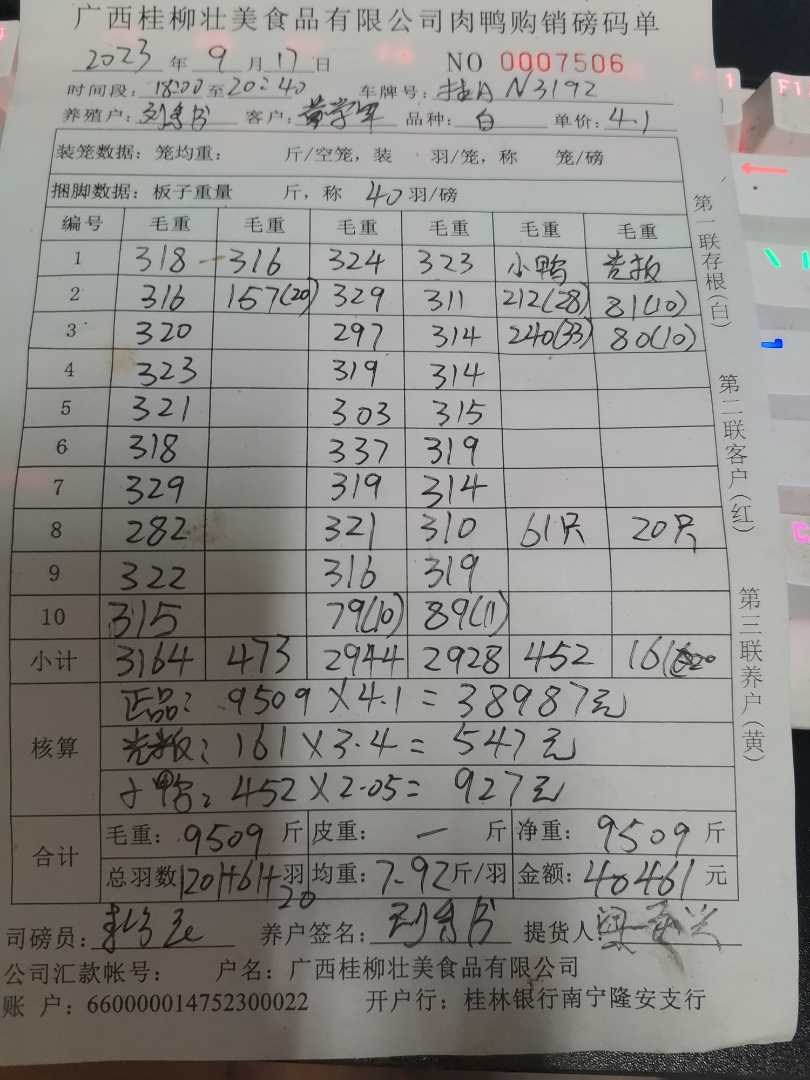 广西桂柳壮美食品有限公司肉鸭购销磅码单
2023 年 9 月 17 日 NO 0007506
时间段: 18:00 至 20:40 车牌号: 桂A N3192
养殖户: 客户: 黄学军 品种: 白 单价: 4.1
装笼数据: 笼均重: 斤/空笼, 装 羽/笼, 称 笼/磅
捆脚数据: 板子重量 斤, 称 40 羽/磅
编号 毛重 毛重 毛重 毛重 毛重 毛重
1 318 316 324 323 小鸭 光板
2 316 157(20) 329 311 212(28) 81(10)
3 320 297 314 240(33) 80(10)
4 323 319 314
5 321 303 315
6 318 337 319
7 329 319 314
8 282 321 310 61只 20只
9 322 316 319
10 315 79(10) 89(11)
小计 3164 473 2944 2928 452 161
核算
正品: 9509×4.1=38987元
光板: 161×3.4=547元
小鸭: 452×2.05=927元
合计
毛重: 9509 斤 皮重: — 斤 净重: 9509 斤
总羽数 1201+61+20 羽 均重: 7.92 斤/羽 金额: 40461 元
司磅员: 养户签名: 提货人:
公司汇款帐号: 户名: 广西桂柳壮美食品有限公司
账 户: 660000014752300022 开户行: 桂林银行南宁隆安支行
第一联存根(白)
第二联客户(红)
第三联养户(黄)